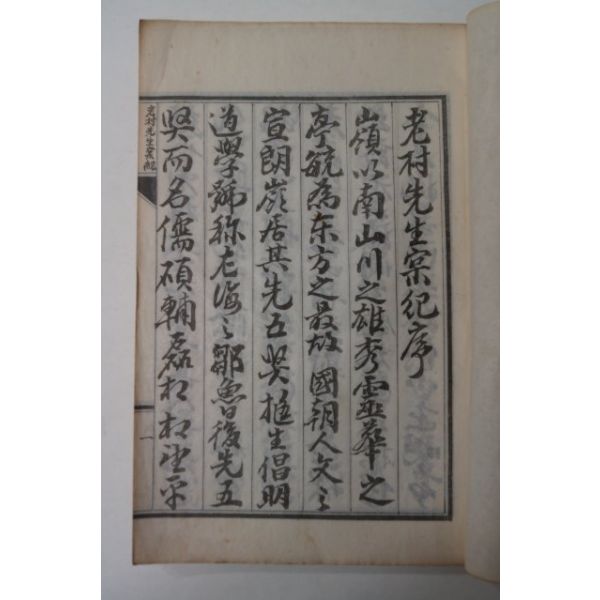 老村先生宲紀序
嶺以南山川之雄秀靈華之
亭毓為东方之最故 國朝人文之
宣朗嵬居其先五賢挺生倡明
道學號称左海之鄒魯後先五
賢而名儒碩輔磊相相望乎
老村先生宲紀
一